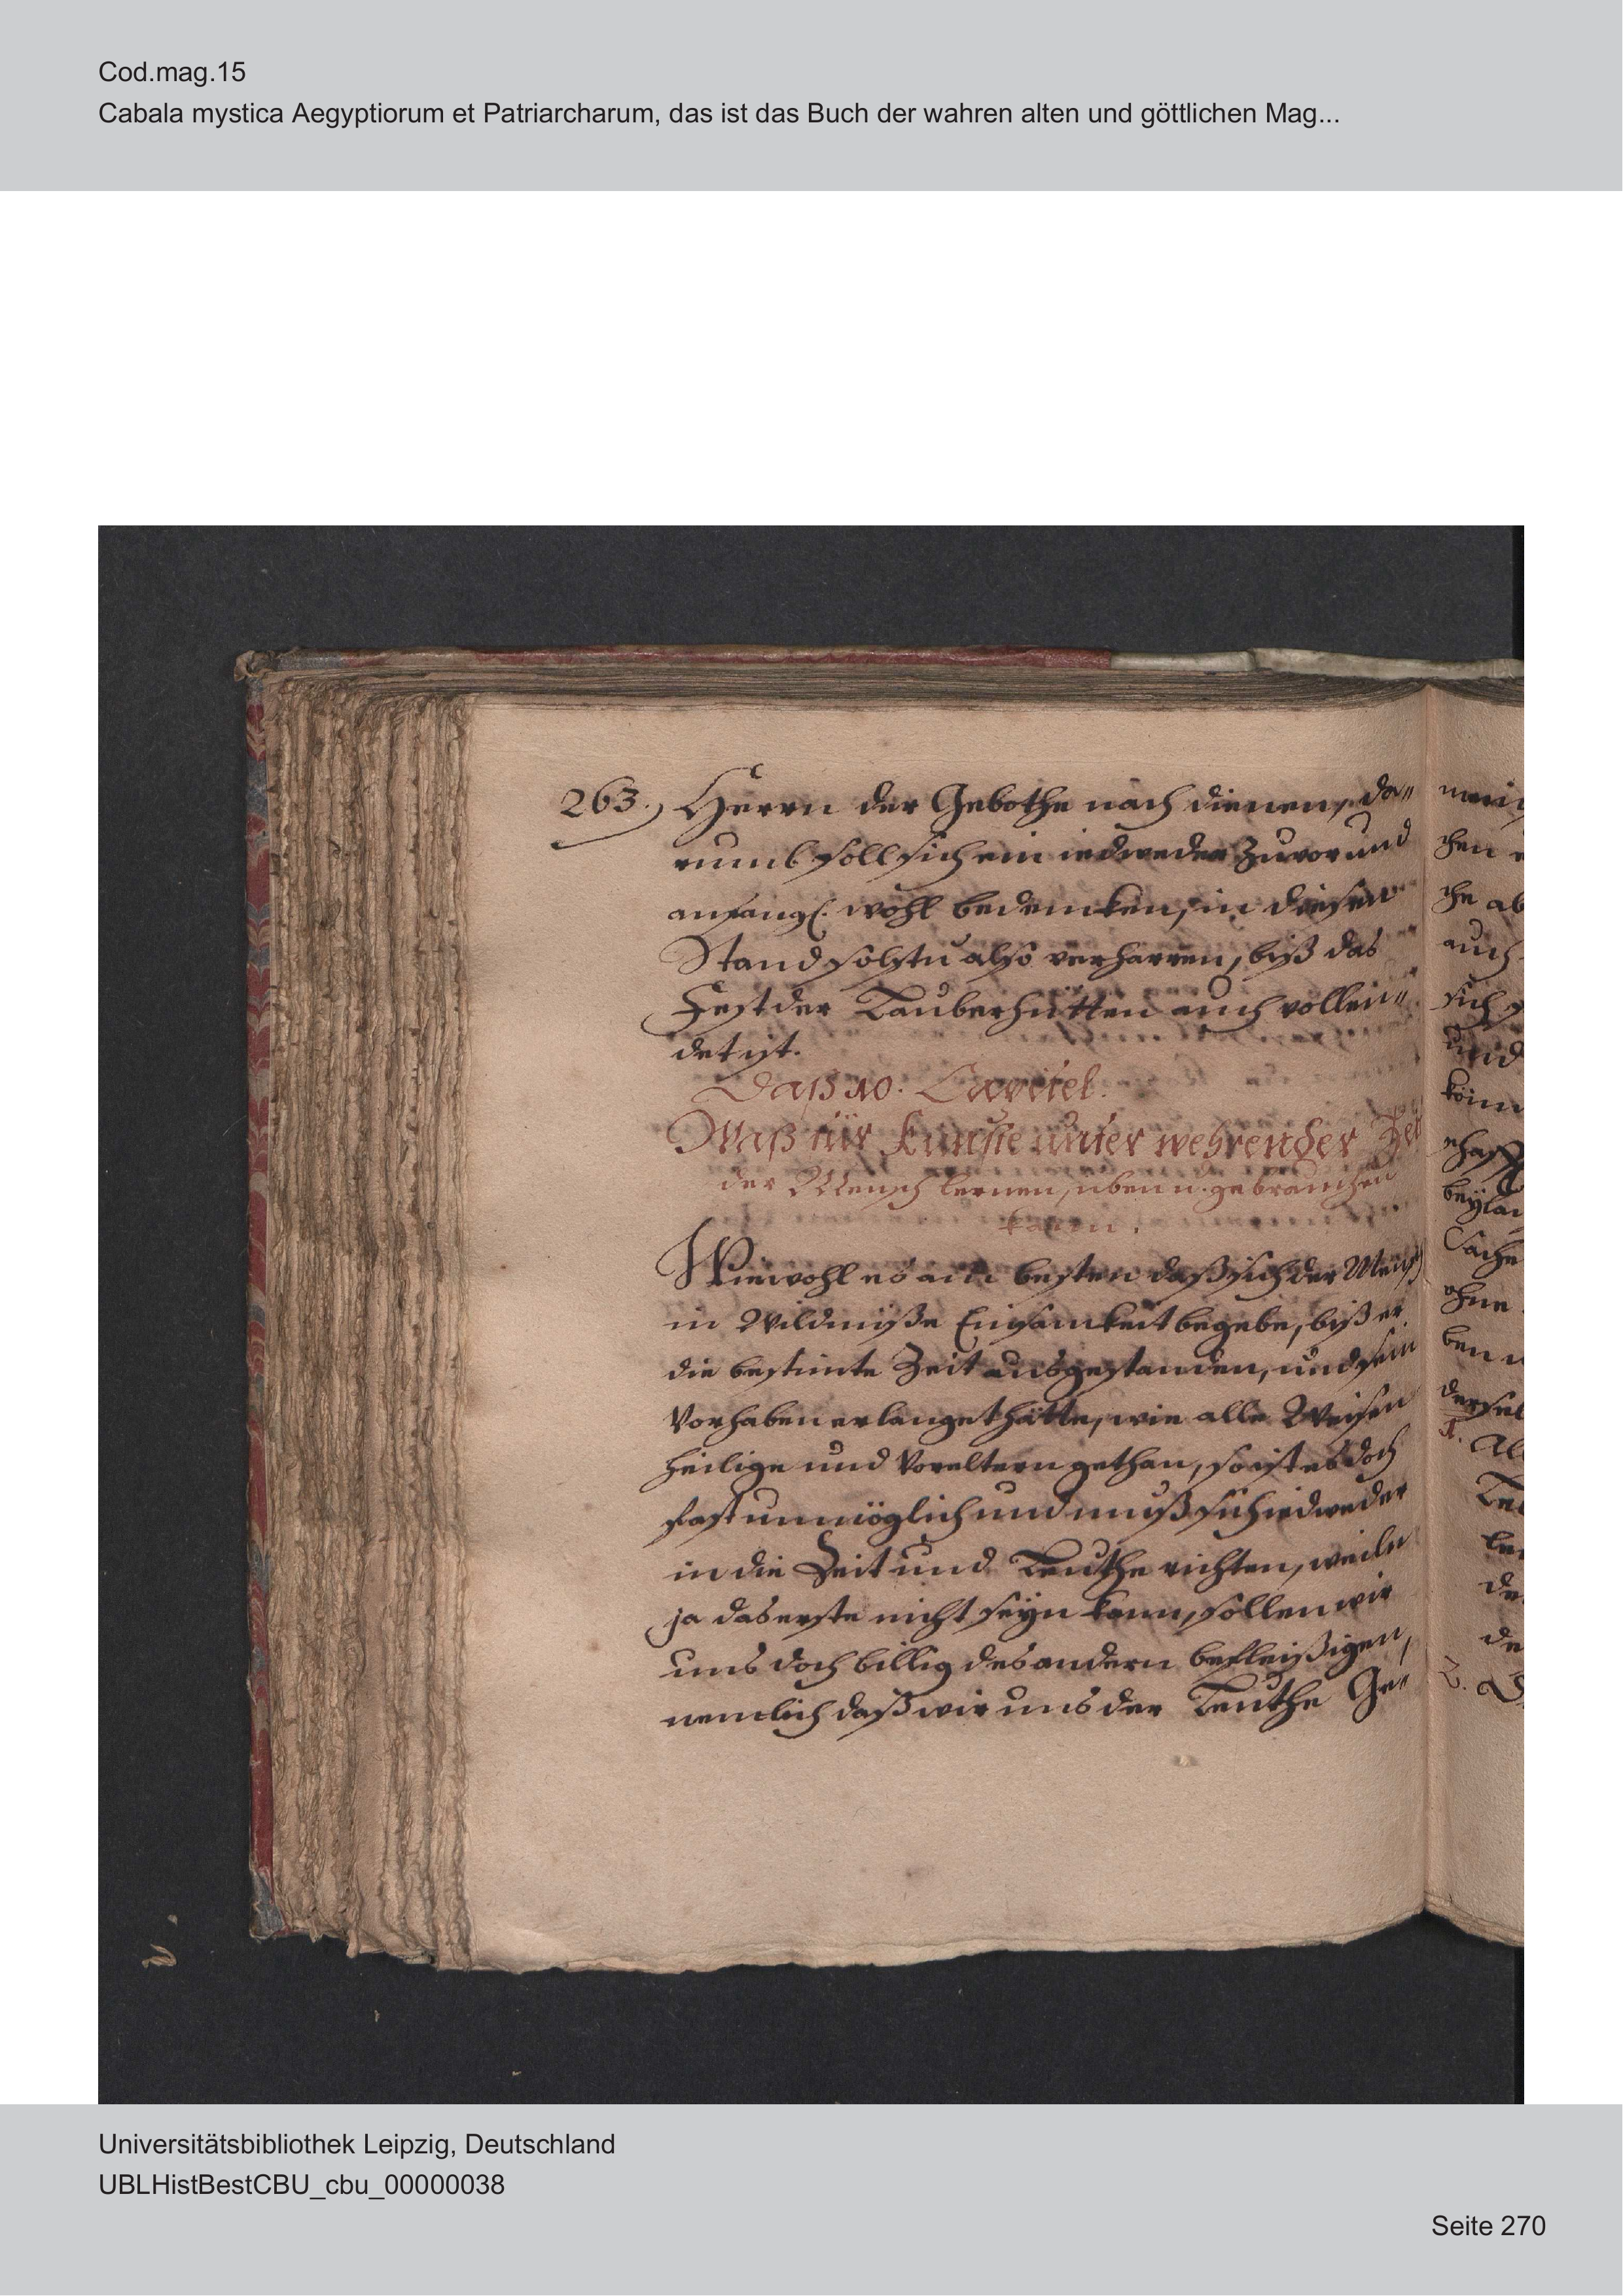 Cod.mag.15
Cabala mystica Aegyptiorum et Patriarcharum, das ist das Buch der wahren alten und göttlichen Mag...
263. Herrn der Gebothe nach dienen, da„
rumb soll sich ein iedweder zuvor und
anfangl. wohl bedencken, in diesen
Stand solstu also verharren, biß das
Fest der Lauberhütten auch vollen„
det ist.
Daß 10. Capitel.
Waß für Künste unter wehrender Zeit
der Mensch lernen, üben u. gebrauchen
kann.
Wiewohl es am besten daß sich der Mensch
in Wildniße Einsamkeit begebe, biß er
die bestimte Zeit ausgestanden, und sein
Vorhaben erlanget hätte, wie alle Weisen
heilige und Voreltern gethan, so ist es doch
fast unmöglich und muß sich iedweder
in die Zeit und Leuthe richten, weiln
ja das erste nicht seyn kann, sollen wir
uns doch billig des andern befleißigen,
nemlich daß wir uns der Leuthe Ge„
chen
che ab
auch
sich
und
könn
beylan
Sache
ohne
ben
dersel
1. Al
2.
Universitätsbibliothek Leipzig, Deutschland
UBLHistBestCBU_cbu_00000038
Seite 270